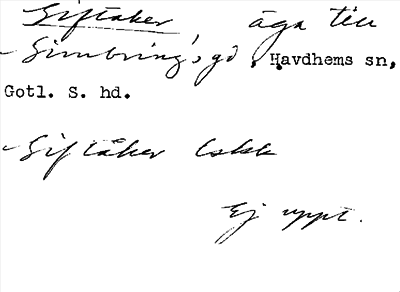 Giftåker, äga till
Simbring's gd, Havdhems sn,
Gotl. S. hd.
Giftåker
Ej uppt.